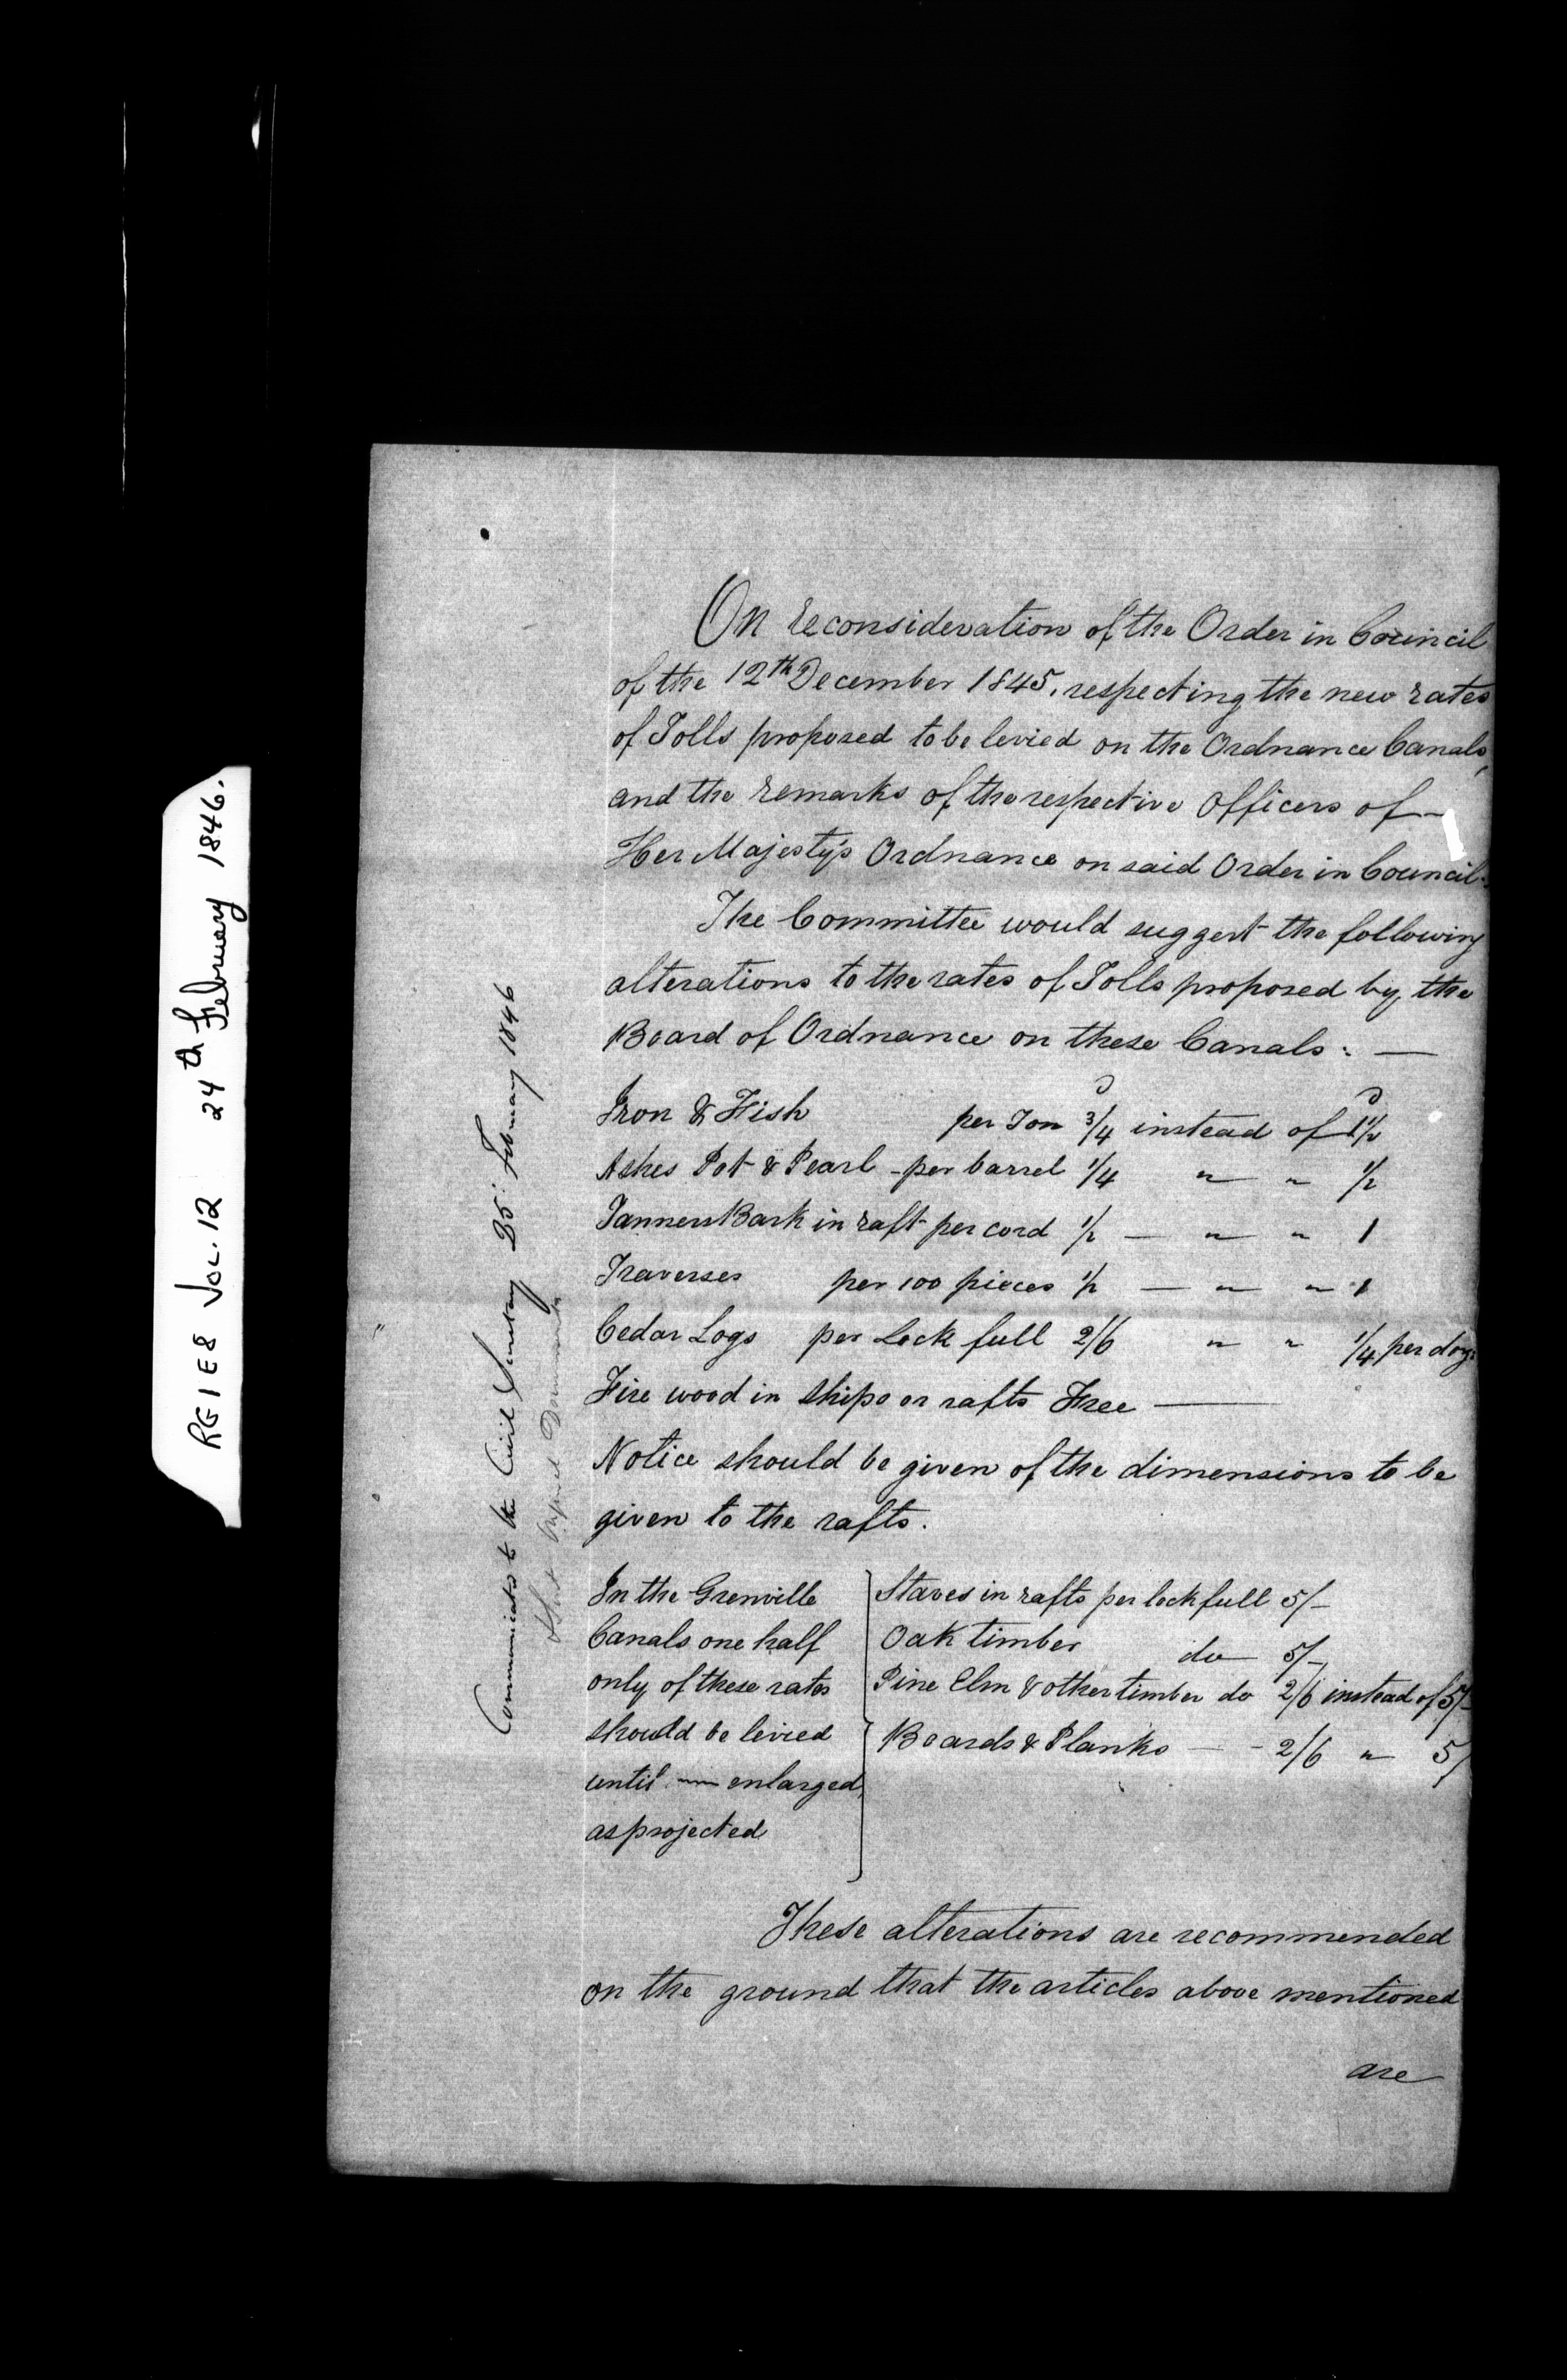 RG 1 E 8 Vol. 12 24th February 1846.
Communicated to the Civil Secretary 25: February 1846
Documents
On reconsideration of the Order in Council
of the 12th December 1845, respecting the new rates
of Tolls proposed to be levied on the Ordnance Canals,
and the remarks of the respective Officers of
Her Majesty's Ordnance on said Order in Council.
The Committee would suggest the following
alterations to the rates of Tolls proposed by the
Board of Ordnance on these Canals: —
Iron & Fish per Ton 3/4 d instead of 1 1/2 d
Ashes Pot & Pearl - per barrel 1/4 " " 1/2
Tanners Bark in raft per cord 1/2 — " " 1
Traverses per 100 pieces 1/2 — " " 1
Cedar Logs per Lock full 2/6 " " 1/4 per dog:
Fire wood in ships or rafts Free —
Notice should be given of the dimensions to be
given to the rafts.
In the Grenville
Canals one half
only of these rates
should be levied
until — enlarged,
as projected
Staves in rafts per lock full 5/-
Oak timber do 5/-
Pine Elm & other timber do 2/6 instead of 5/-
Boards & Planks — - 2/6 " 5/
These alterations are recommended
on the ground that the articles above mentioned
are